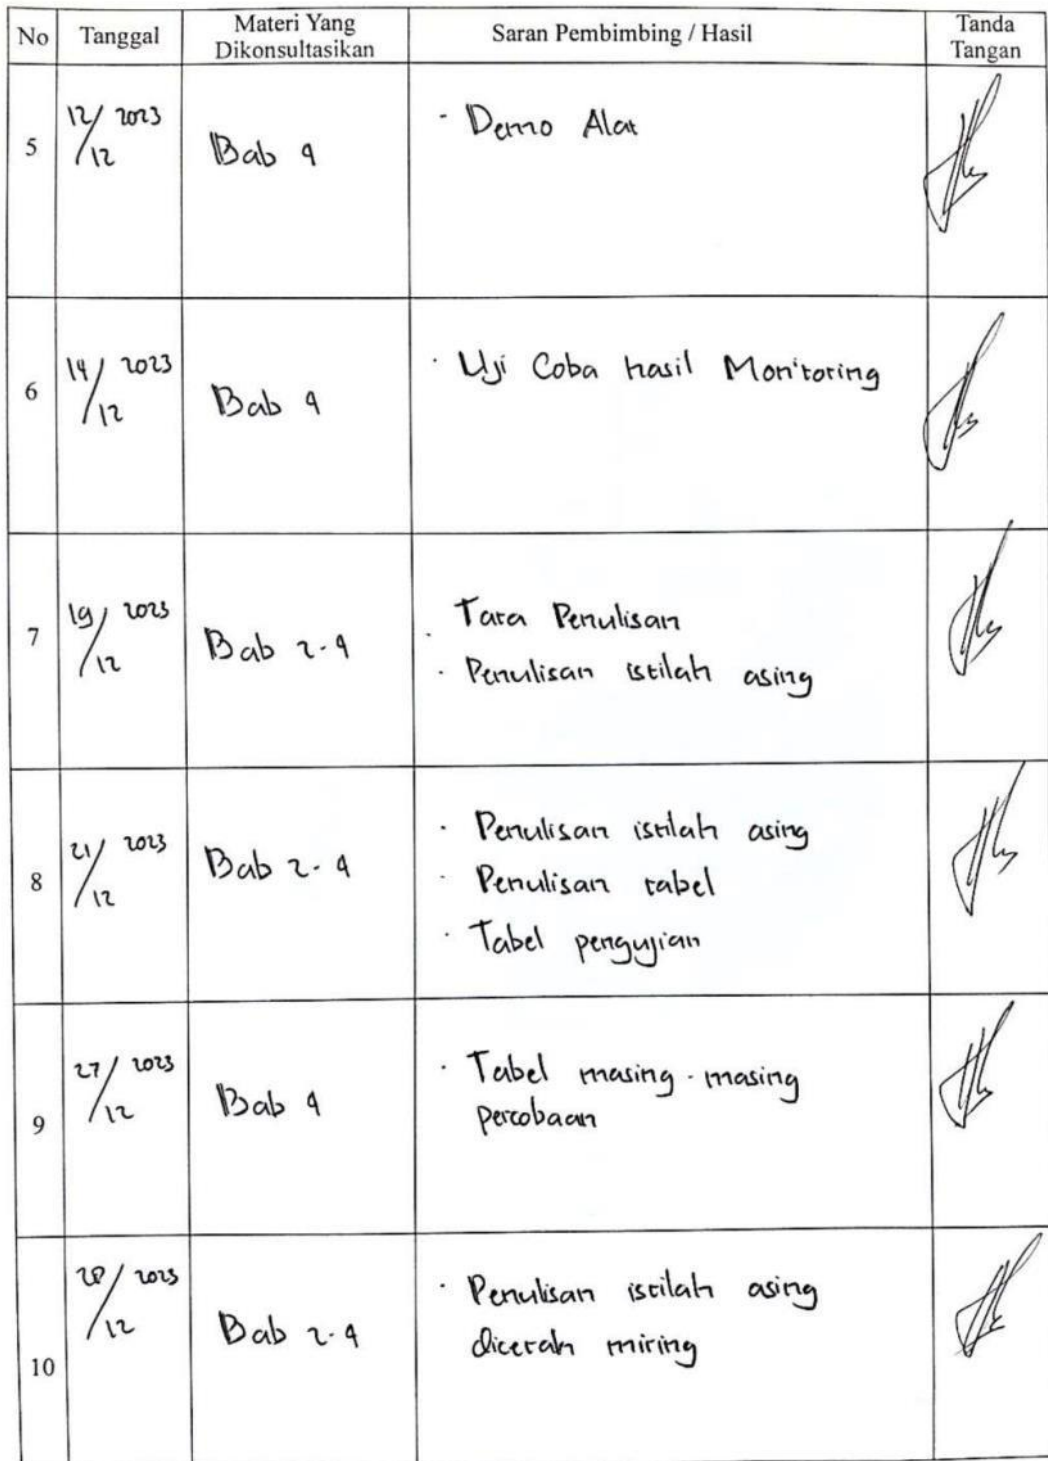 No Tanggal Materi Yang Dikonsultasikan Saran Pembimbing / Hasil Tanda Tangan
5 12/12 2023 Bab 4 - Demo Alat
6 14/12 2023 Bab 4 · Uji Coba hasil Monitoring
7 19/12 2023 Bab 2-4 · Tata Penulisan
· Penulisan istilah asing
8 21/12 2023 Bab 2-4 · Penulisan istilah asing
- Penulisan tabel
· Tabel pengujian
9 27/12 2023 Bab 4 · Tabel masing-masing
percobaan
10 28/12 2023 Bab 2-4 · Penulisan istilah asing
dicetak miring